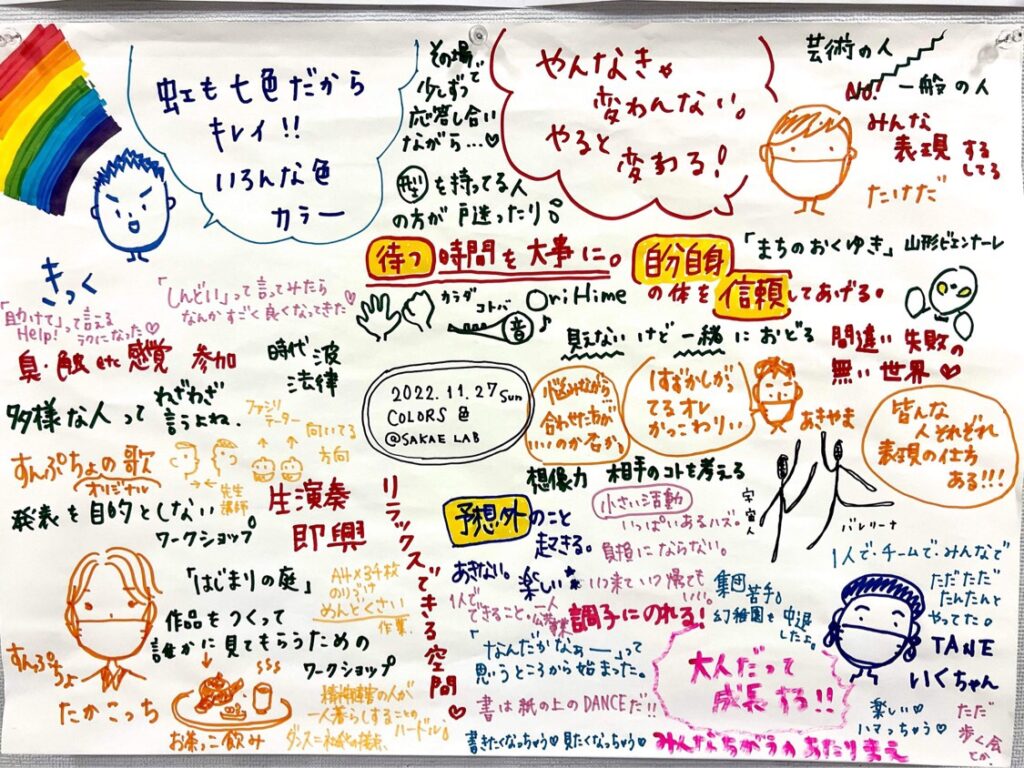 虹も七色だから
キレイ!!
いろんな色
カラー
きっく
その場で
少しずつ
応答し合い
ながら…♡
を持ってる人
の方が戸迷ったり。
やんなきゃ
変わんない。
やると
変わる!
芸術の人
No!
一般の人
みんな
表現するしてる
たけだ
待つ時間を大事に。
自分自身
の体を信頼してあげる。
「まちのおくゆき」山形ビエンナーレ
カラダ
コトバ
音♪
OriHime
見えないけど一緒におどる
間違い失敗の
無い世界♡
「助けて」って言える
Help!
ラクになった♡
「しんどい」って言ってみたら
なんかすごく良くなってきた♡
臭・触 etc 感覚 参加
時代 波
法律
多様な人って
わざわざ
言うよね.
ファシリ
テーター
向いてる
方向
先生
講師
すんぷちょの歌
オリジナル
発表を目的としない
ワークショップ
生演奏
即興
2022.11.27 Sun
COLORS 色
@SAKAE LAB
悩みながら…
合わせた方が
いいのか否か。
はずかしがっ
てるオレ
かっこわりい
あきやま
皆んな
人それぞれ
表現の仕方
ある!!!
宇宙人
バレリーナ
想像力 相手のコトを考える
小さい活動
いっぱいあるハズ。
負担にならない。
いつ来ていつ帰ても
いい。
予想外のこと
起きる。
あきない。楽しい
1人で
できること。
調子にのれる!
集団
苦手。
幼稚園を中退
したよ。
1人で・チームで・みんなで
ただただ
たんたんと
やってた。
TANE
いくちゃん
楽しい♡
ハマっちゃう♡
ただ
歩く会
とか.
リラックスできる空間♡
「はじまりの庭」
作品をつくって
誰かに見てもらうための
ワークショップ
A4×3千枚
のりづけ
めんどくさい
作業.
すんぷちょ
たかこっち
お茶っこ飲み
sss
精神障害の人が
一人暮らしすることの
ハードル。
「なんだかなぁー」って
思うところから始まった。
書は紙の上のDANCEだ!!
書きたくなっちゃう♡見たくなっちゃう♡
大人だって
成長する!!
みんなちがうのあたりまえ